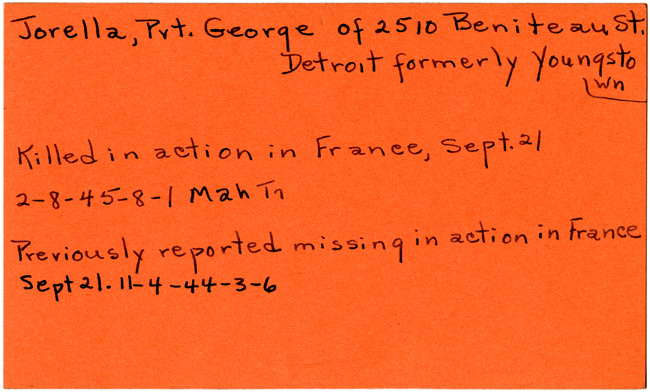 Jorella, Pvt. George of 2510 Beniteau St.
Detroit formerly Youngsto
wn
Killed in action in France, Sept. 21
2-8-45-8-1 Mah Tn
Previously reported missing in action in France
Sept 21. 11-4-44-3-6